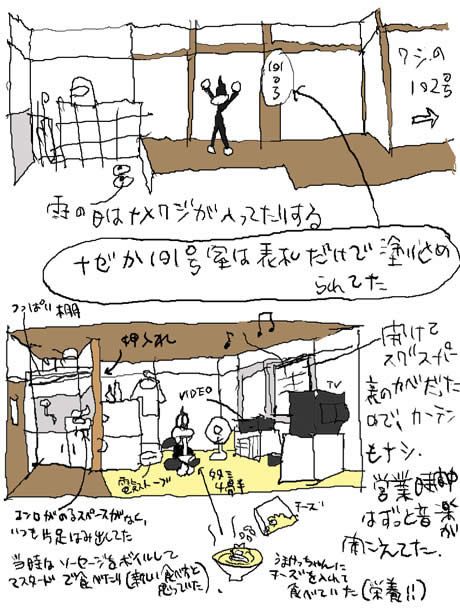 191号
ワシの
192号
雨の日はナメクジが入ってたりする
ナゼか191号室は表札だけで塗り込め
られてた
つっぱり棚
押入れ
VIDEO
TV
電気ストーブ
4畳半
チーズ
開けて
スグスーパー
裏のカベだった
ので、カーテン
もナシ。
営業時間中
はずっと音楽が
聞こえてた。
コンロがのるスペースがなく、
いつも片足はみ出してた
当時はソーセージをボイルして
マスタードで食べたり(新しい食べ方と
思っていた)
うまかっちゃんに
チーズを入れて
食べていた(栄養!!)